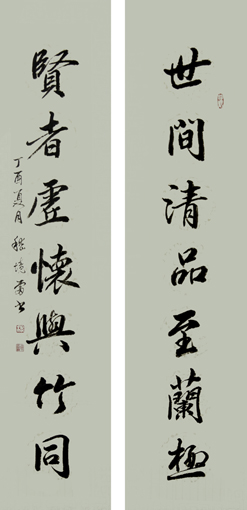 世間清品至蘭極
賢者虛懷與竹同
丁酉夏月